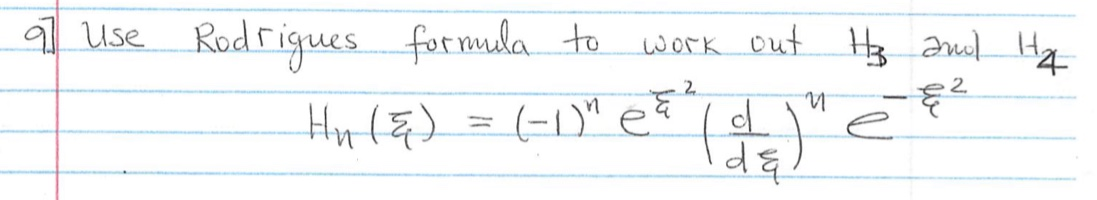 9] Use Rodrigues formula to work out H₃ and H₄
Hₙ(ξ) = (-1)ⁿ e^{ξ²} (d/dξ)ⁿ e^{-ξ²}